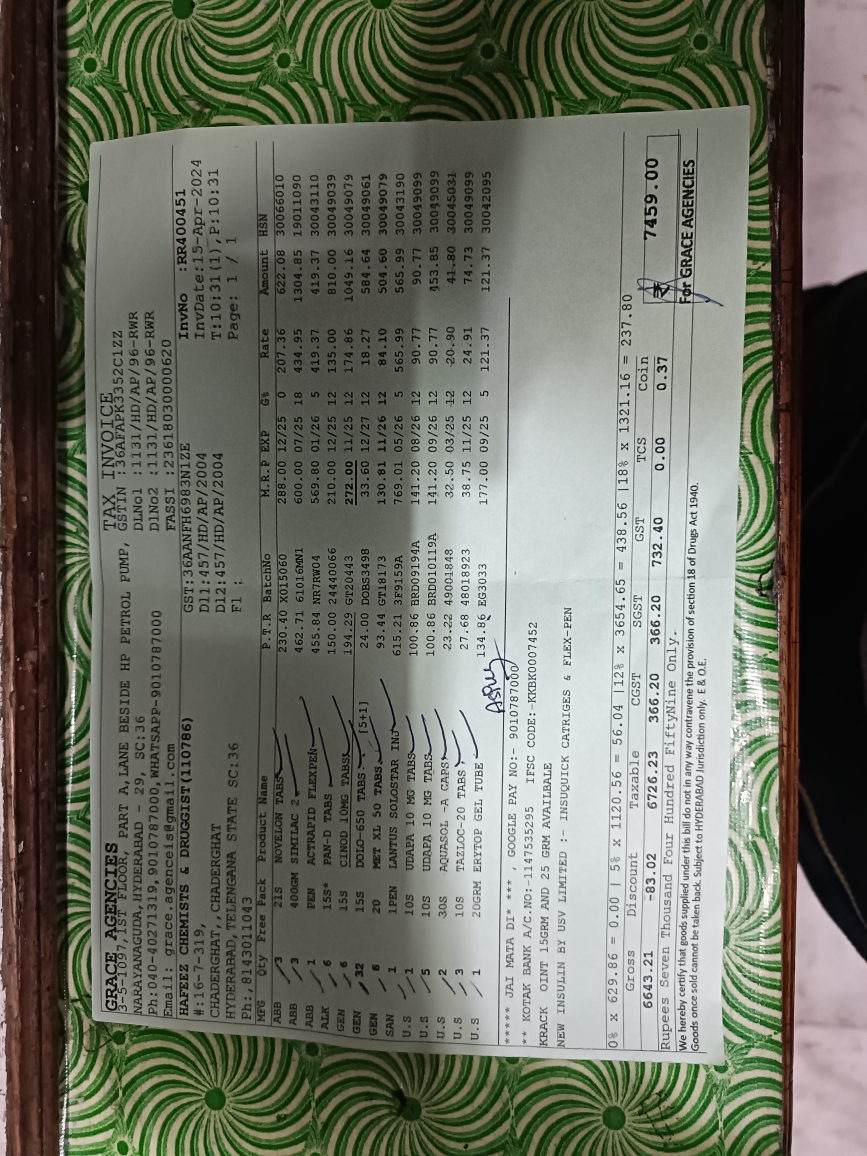 TAX INVOICE
GRACE AGENCIES
3-5-1097,1ST FLOOR, PART A,LANE BESIDE HP PETROL PUMP,
NARAYANAGUDA,HYDERABAD - 29, SC:36
Ph:040-40271319,9010787000,WHATSAPP-9010787000
Email: grace.agenceis@gmail.com
GSTIN :36AFAPK3352C1ZZ
DLNo1 :1131/HD/AP/96-RWR
DlNo2 :1131/HD/AP/96-RWR
FASSI :23618030000620
HAFEEZ CHEMISTS & DRUGGIST(110786)
#:16-7-319,
CHADERGHAT,,CHADERGHAT
HYDERABAD,TELENGANA STATE SC:36
Ph:,8143011043
GST:36AANFH6983N1ZE
Dl1:457/HD/AP/2004
Dl2:457/HD/AP/2004
Fl :
InvNo :RR400451
InvDate:15-Apr-2024
T:10:31(1),P:10:31
Page: 1 / 1
MFG Qty Free Pack Product Name P.T.R BatchNo M.R.P EXP G% Rate Amount HSN
ABB 3 21S NOVELON TABS 230.40 XO15060 288.00 12/25 0 207.36 622.08 30066010
ABB 3 400GM SIMILAC 2 462.71 61016MN1 600.00 07/25 18 434.95 1304.85 19011090
ABB 1 PEN ACTRAPID FLEXPEN 455.84 NR7RW04 569.80 01/26 5 419.37 419.37 30043110
ALK 6 15S* PAN-D TABS 150.00 24440066 210.00 12/25 12 135.00 810.00 30049039
GEN 6 15S CINOD 10MG TABS 194.29 GT20443 272.00 11/25 12 174.86 1049.16 30049079
GEN 32 15S DOLO-650 TABS [5+1] 24.00 DOBS3498 33.60 12/27 12 18.27 584.64 30049061
GEN 6 20 MET XL 50 TABS 93.44 GT18173 130.81 11/26 12 84.10 504.60 30049079
SAN 1 1PEN LANTUS SOLOSTAR INJ 615.21 3F9159A 769.01 05/26 5 565.99 565.99 30043190
U.S 1 10S UDAPA 10 MG TABS 100.86 BRD09194A 141.20 08/26 12 90.77 90.77 30049099
U.S 5 10S UDAPA 10 MG TABS 100.86 BRD010119A 141.20 09/26 12 90.77 453.85 30049099
U.S 2 30S AQUASOL -A CAPS 23.22 49001848 32.50 03/25 12 20.90 41.80 30045031
U.S 3 10S TAZLOC-20 TABS 27.68 48018923 38.75 11/25 12 24.91 74.73 30049099
U.S 1 20GRM ERYTOP GEL TUBE 134.86 EG3033 177.00 09/25 5 121.37 121.37 30042095
***** JAI MATA DI* *** , GOOGLE PAY NO:- 9010787000
** KOTAK BANK A/C.NO:-1147535295 IFSC CODE:-KKBK0007452
KRACK OINT 15GRM AND 25 GRM AVAILBALE
NEW INSULIN BY USV LIMITED :- INSUQUICK CATRIGES & FLEX-PEN
0% x 629.86 = 0.00 | 5% x 1120.56 = 56.04 |12% x 3654.65 = 438.56 |18% x 1321.16 = 237.80
Gross Discount Taxable CGST SGST GST TCS Coin
6643.21 -83.02 6726.23 366.20 366.20 732.40 0.00 0.37 ₹ 7459.00
Rupees Seven Thousand Four Hundred FiftyNine Only.
We hereby certify that goods supplied under this bill do not in any way contravene the provision of section 18 of Drugs Act 1940.
Goods once sold cannot be taken back. Subject to HYDERABAD Jurisdiction only. E & O.E.
For GRACE AGENCIES